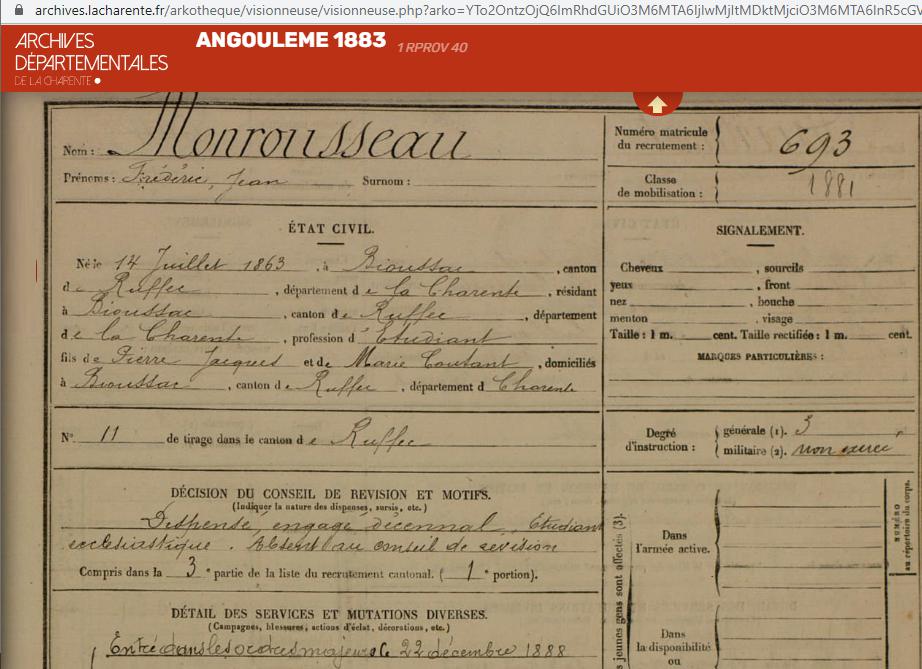 archives.lacharente.fr/arkotheque/visionneuse/visionneuse.php?arko=
ARCHIVES
DÉPARTEMENTALES
DE LA CHARENTE
ANGOULEME 1883 1 RPROV 40
Nom : Monrousseau
Prénoms : Frédéric, Jean Surnom :
Numéro matricule
du recrutement : 693
Classe
de mobilisation : 1881
ÉTAT CIVIL.
Né le 14 Juillet 1863, à Bioussac, canton
de Ruffec, département de la Charente, résidant
à Bioussac, canton de Ruffec, département
de la Charente, profession d'Etudiant
fils de Pierre Jacques et de Marie Coutant, domiciliés
à Bioussac, canton de Ruffec, département d Charente
SIGNALEMENT.
Cheveux , sourcils
yeux , front
nez , bouche
menton , visage
Taille : 1 m. cent. Taille rectifiée : 1 m. cent.
MARQUES PARTICULIÈRES :
N° 11 de tirage dans le canton de Ruffec
Degré
d'instruction :
générale (1). 3
militaire (2). non exercé
DÉCISION DU CONSEIL DE REVISION ET MOTIFS.
(Indiquer la nature des dispenses, sursis, etc.)
Dispensé, engagé décennal, Etudiant
ecclésiastique. Absent au conseil de révision
Compris dans la 3e partie de la liste du recrutement cantonal. (1e portion).
DÉTAIL DES SERVICES ET MUTATIONS DIVERSES.
(Campagnes, blessures, actions d'éclat, décorations, etc.)
Entré dans les ordres majeurs le 22 décembre 1888
jeunes gens sont affectés (3).
Dans
l'armée active.
Dans
la disponibilité
ou
NUMÉRO
au répertoire du corps.